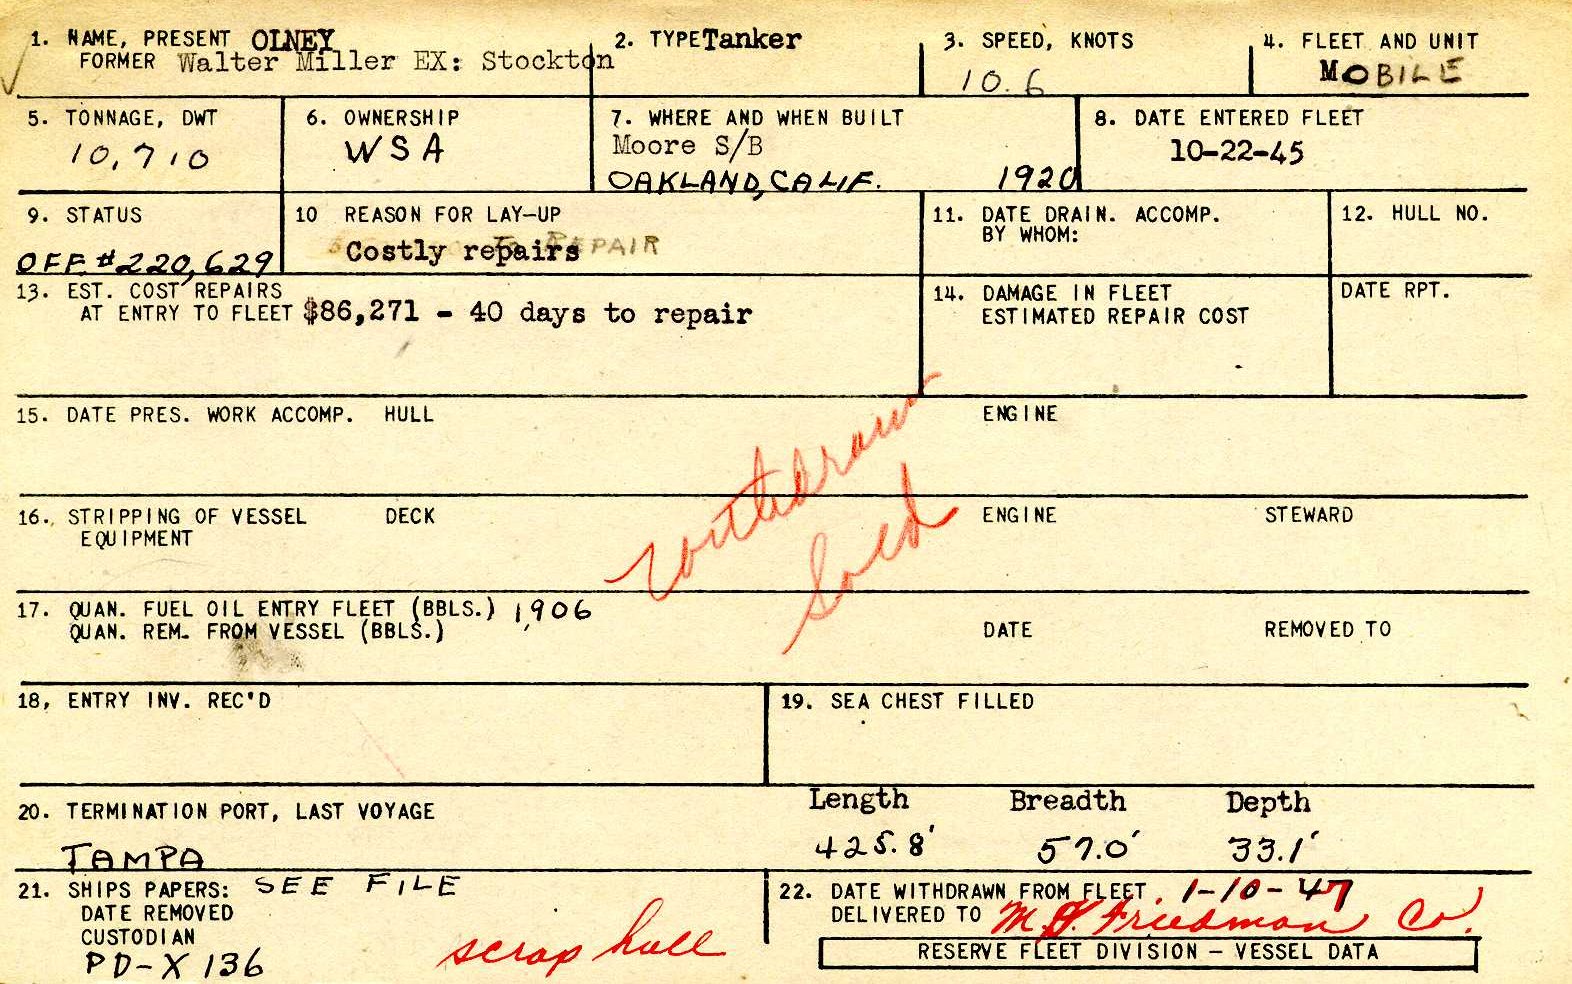 1. NAME, PRESENT OLNEY
FORMER Walter Miller EX: Stockton
2. TYPE Tanker
3. SPEED, KNOTS
10.6
4. FLEET AND UNIT
MOBILE
5. TONNAGE, DWT
10,710
6. OWNERSHIP
WSA
7. WHERE AND WHEN BUILT
Moore S/B
OAKLAND, CALIF. 1920
8. DATE ENTERED FLEET
10-22-45
9. STATUS
OFF. #220,629
10 REASON FOR LAY-UP
Costly repairs
REPAIR
11. DATE DRAIN. ACCOMP.
BY WHOM:
12. HULL NO.
13. EST. COST REPAIRS
AT ENTRY TO FLEET $86,271 - 40 days to repair
14. DAMAGE IN FLEET
ESTIMATED REPAIR COST
DATE RPT.
15. DATE PRES. WORK ACCOMP. HULL ENGINE
withdrawn
Sold
16. STRIPPING OF VESSEL DECK ENGINE STEWARD
EQUIPMENT
17. QUAN. FUEL OIL ENTRY FLEET (BBLS.) 1,906
QUAN. REM. FROM VESSEL (BBLS.) DATE REMOVED TO
18, ENTRY INV. REC'D
19. SEA CHEST FILLED
20. TERMINATION PORT, LAST VOYAGE
TAMPA
Length Breadth Depth
425.8' 57.0' 33.1'
21. SHIPS PAPERS: SEE FILE
DATE REMOVED
CUSTODIAN
PD-X 136
scrap hull
22. DATE WITHDRAWN FROM FLEET 1-10-47
DELIVERED TO Friedman Co.
RESERVE FLEET DIVISION - VESSEL DATA